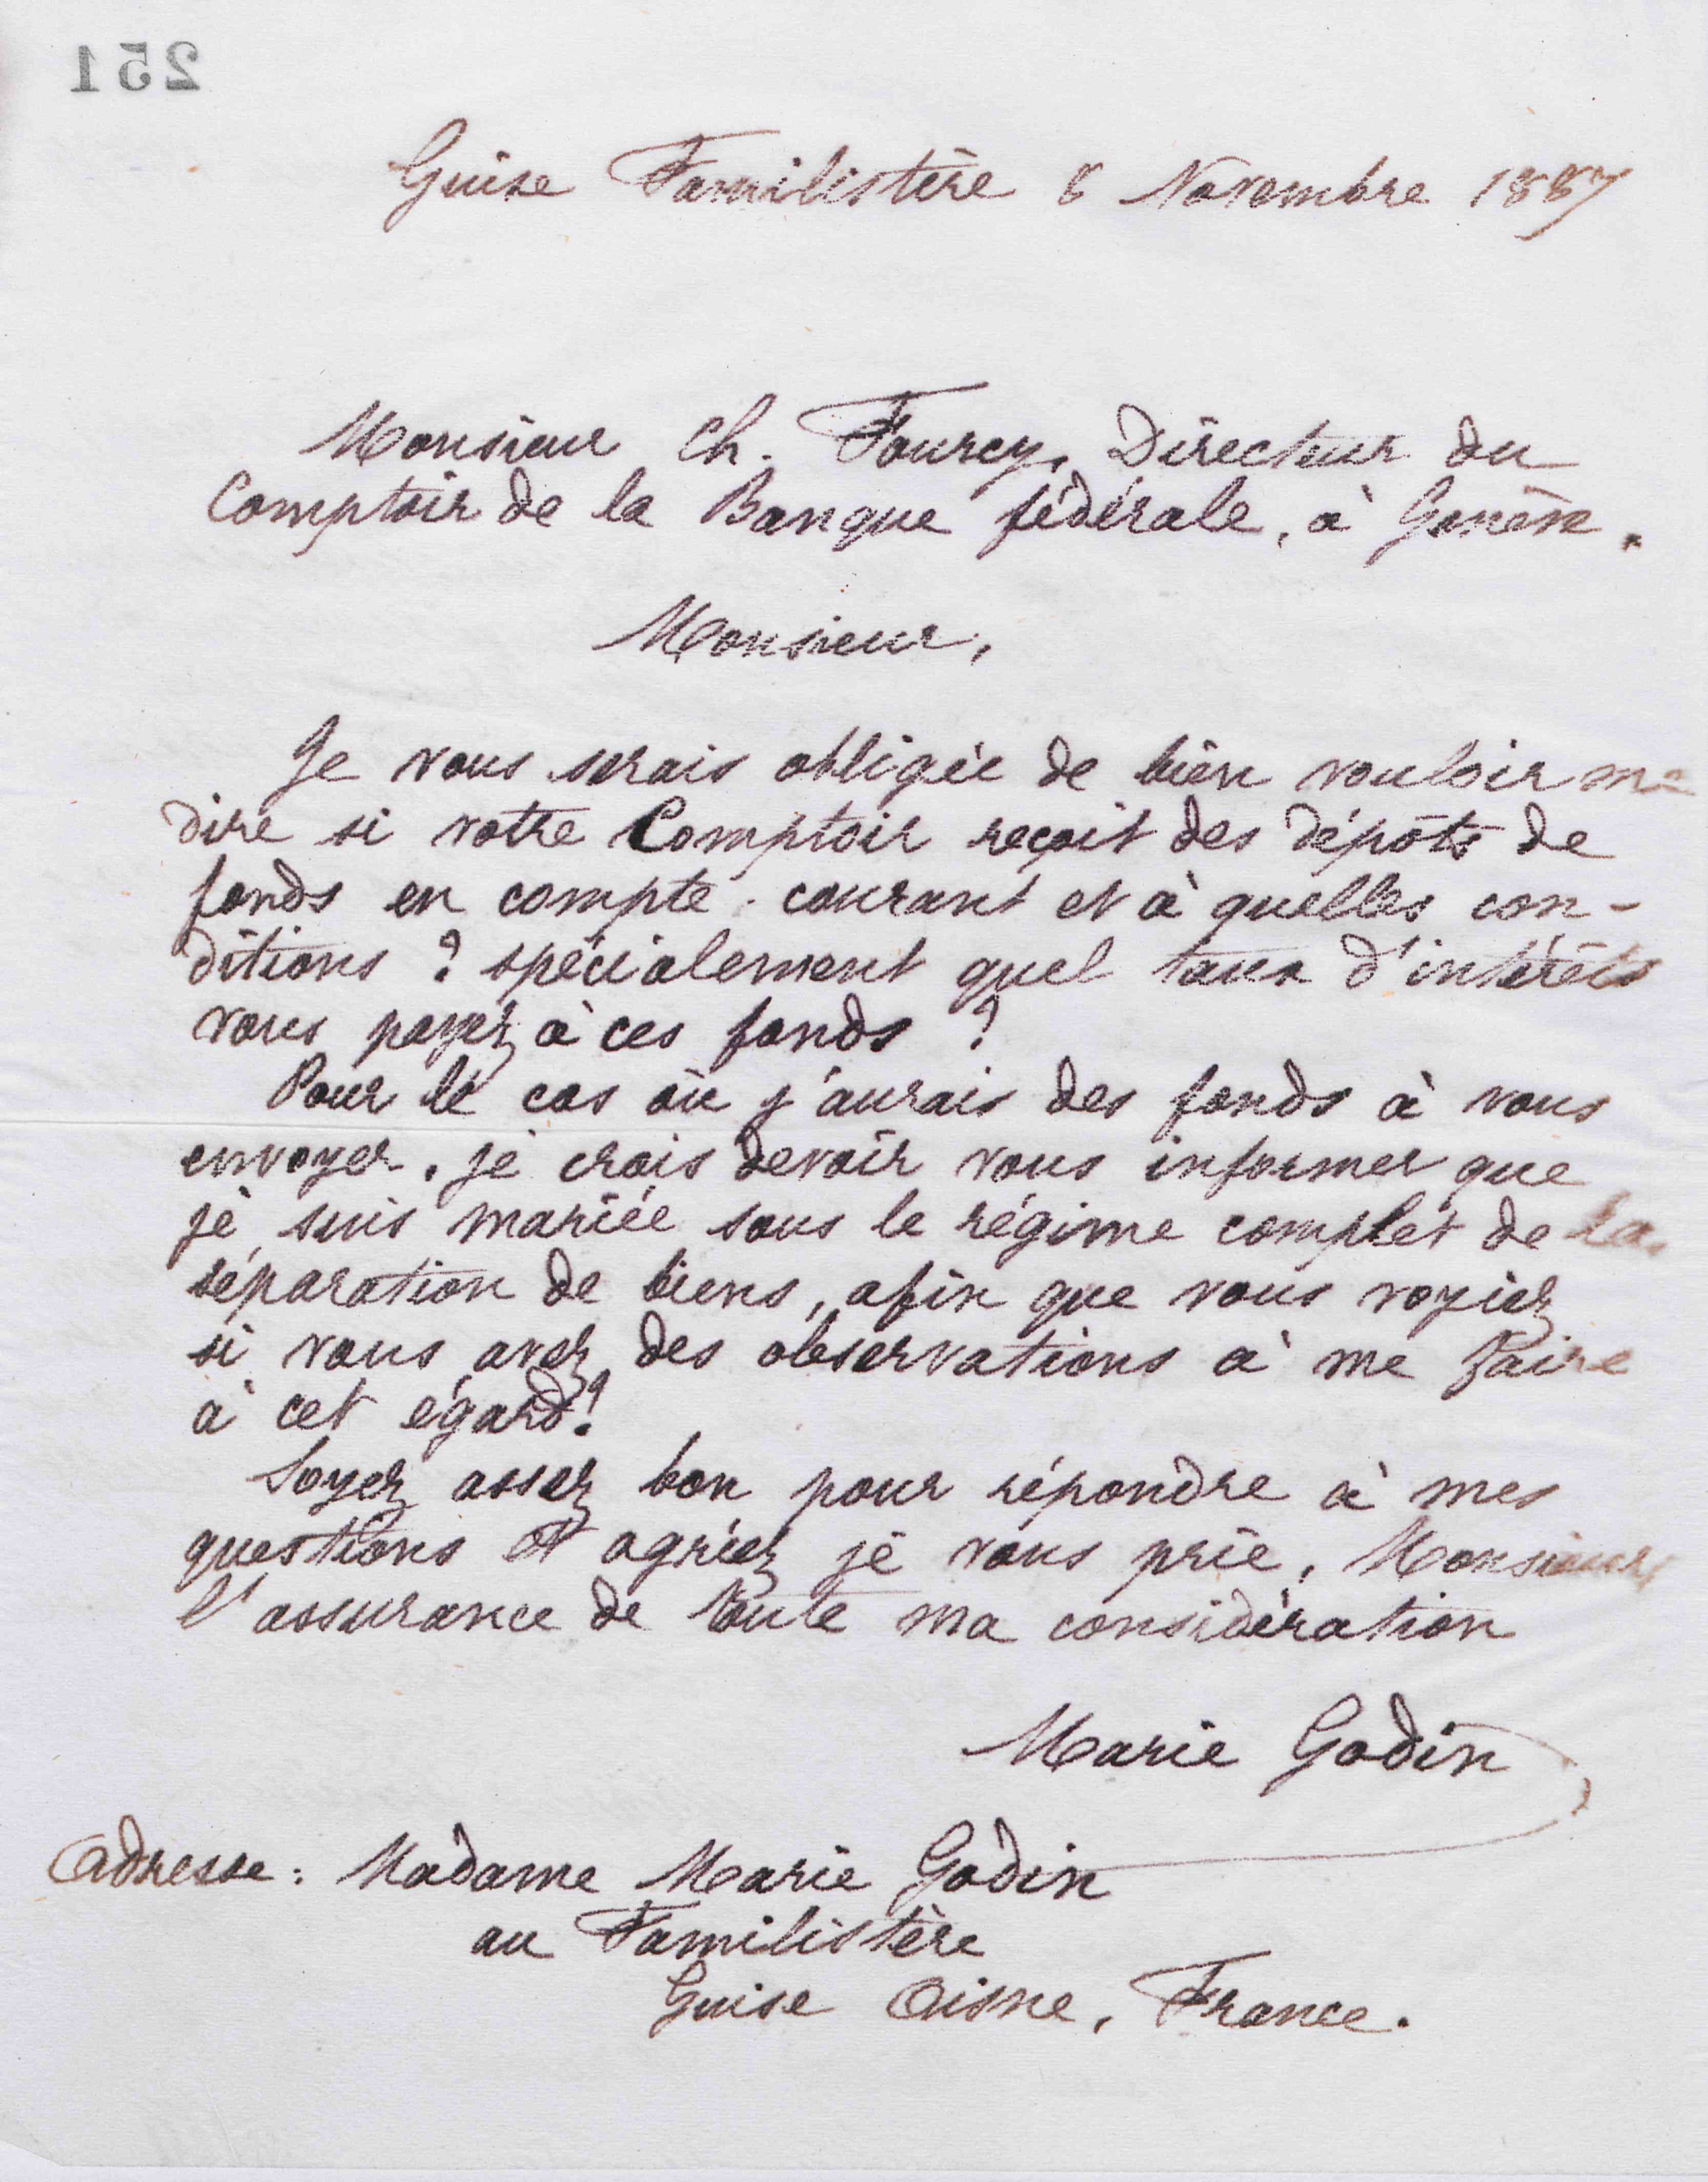 251
Guise Familistère 8 Novembre 1887
Monsieur Ch. Fourcy, Directeur du
Comptoir de la Banque fédérale, à Genève.
Monsieur,
Je vous serais obligée de bien vouloir me
dire si votre Comptoir reçoit des dépôts de
fonds en compte courant et à quelles con-
ditions ? spécialement quel taux d'intérêts
vous payez à ces fonds ?
Pour le cas où j'aurais des fonds à vous
envoyer, je crois devoir vous informer que
je suis mariée sous le régime complet de la
séparation de biens, afin que vous voyiez
si vous avez des observations à me faire
à cet égard?
Soyez assez bon pour répondre à mes
questions et agréez je vous prie, Monsieur,
l'assurance de toute ma considération
Marie Godin
Adresse : Madame Marie Godin
au Familistère
Guise Aisne, France.